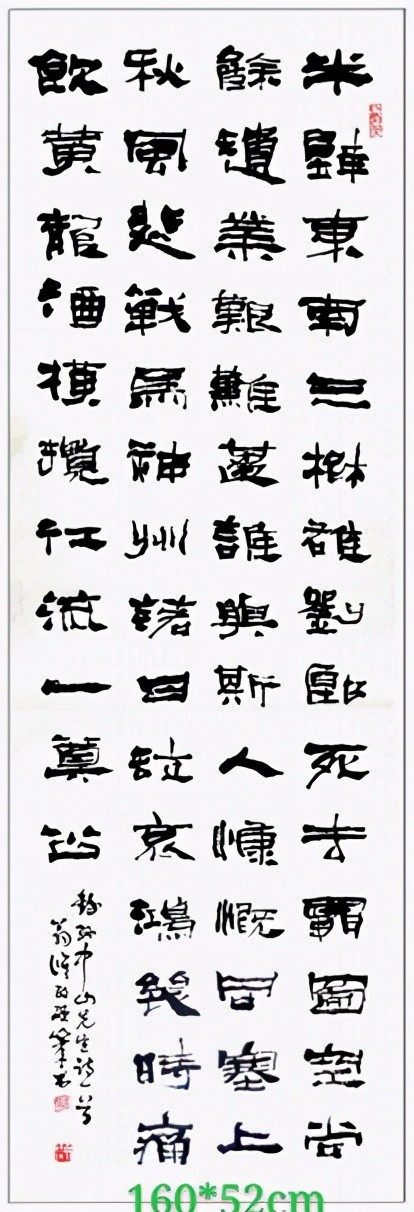 半壁東南三楚雄劉郎死去霸圖空尚
餘遺業艱難甚誰與斯人慷慨同塞上
秋風悲戰馬神州落日泣哀鴻幾時痛
飲黃龍酒橫攬江流一奠公
錄孫中山先生詩一首
160*52cm